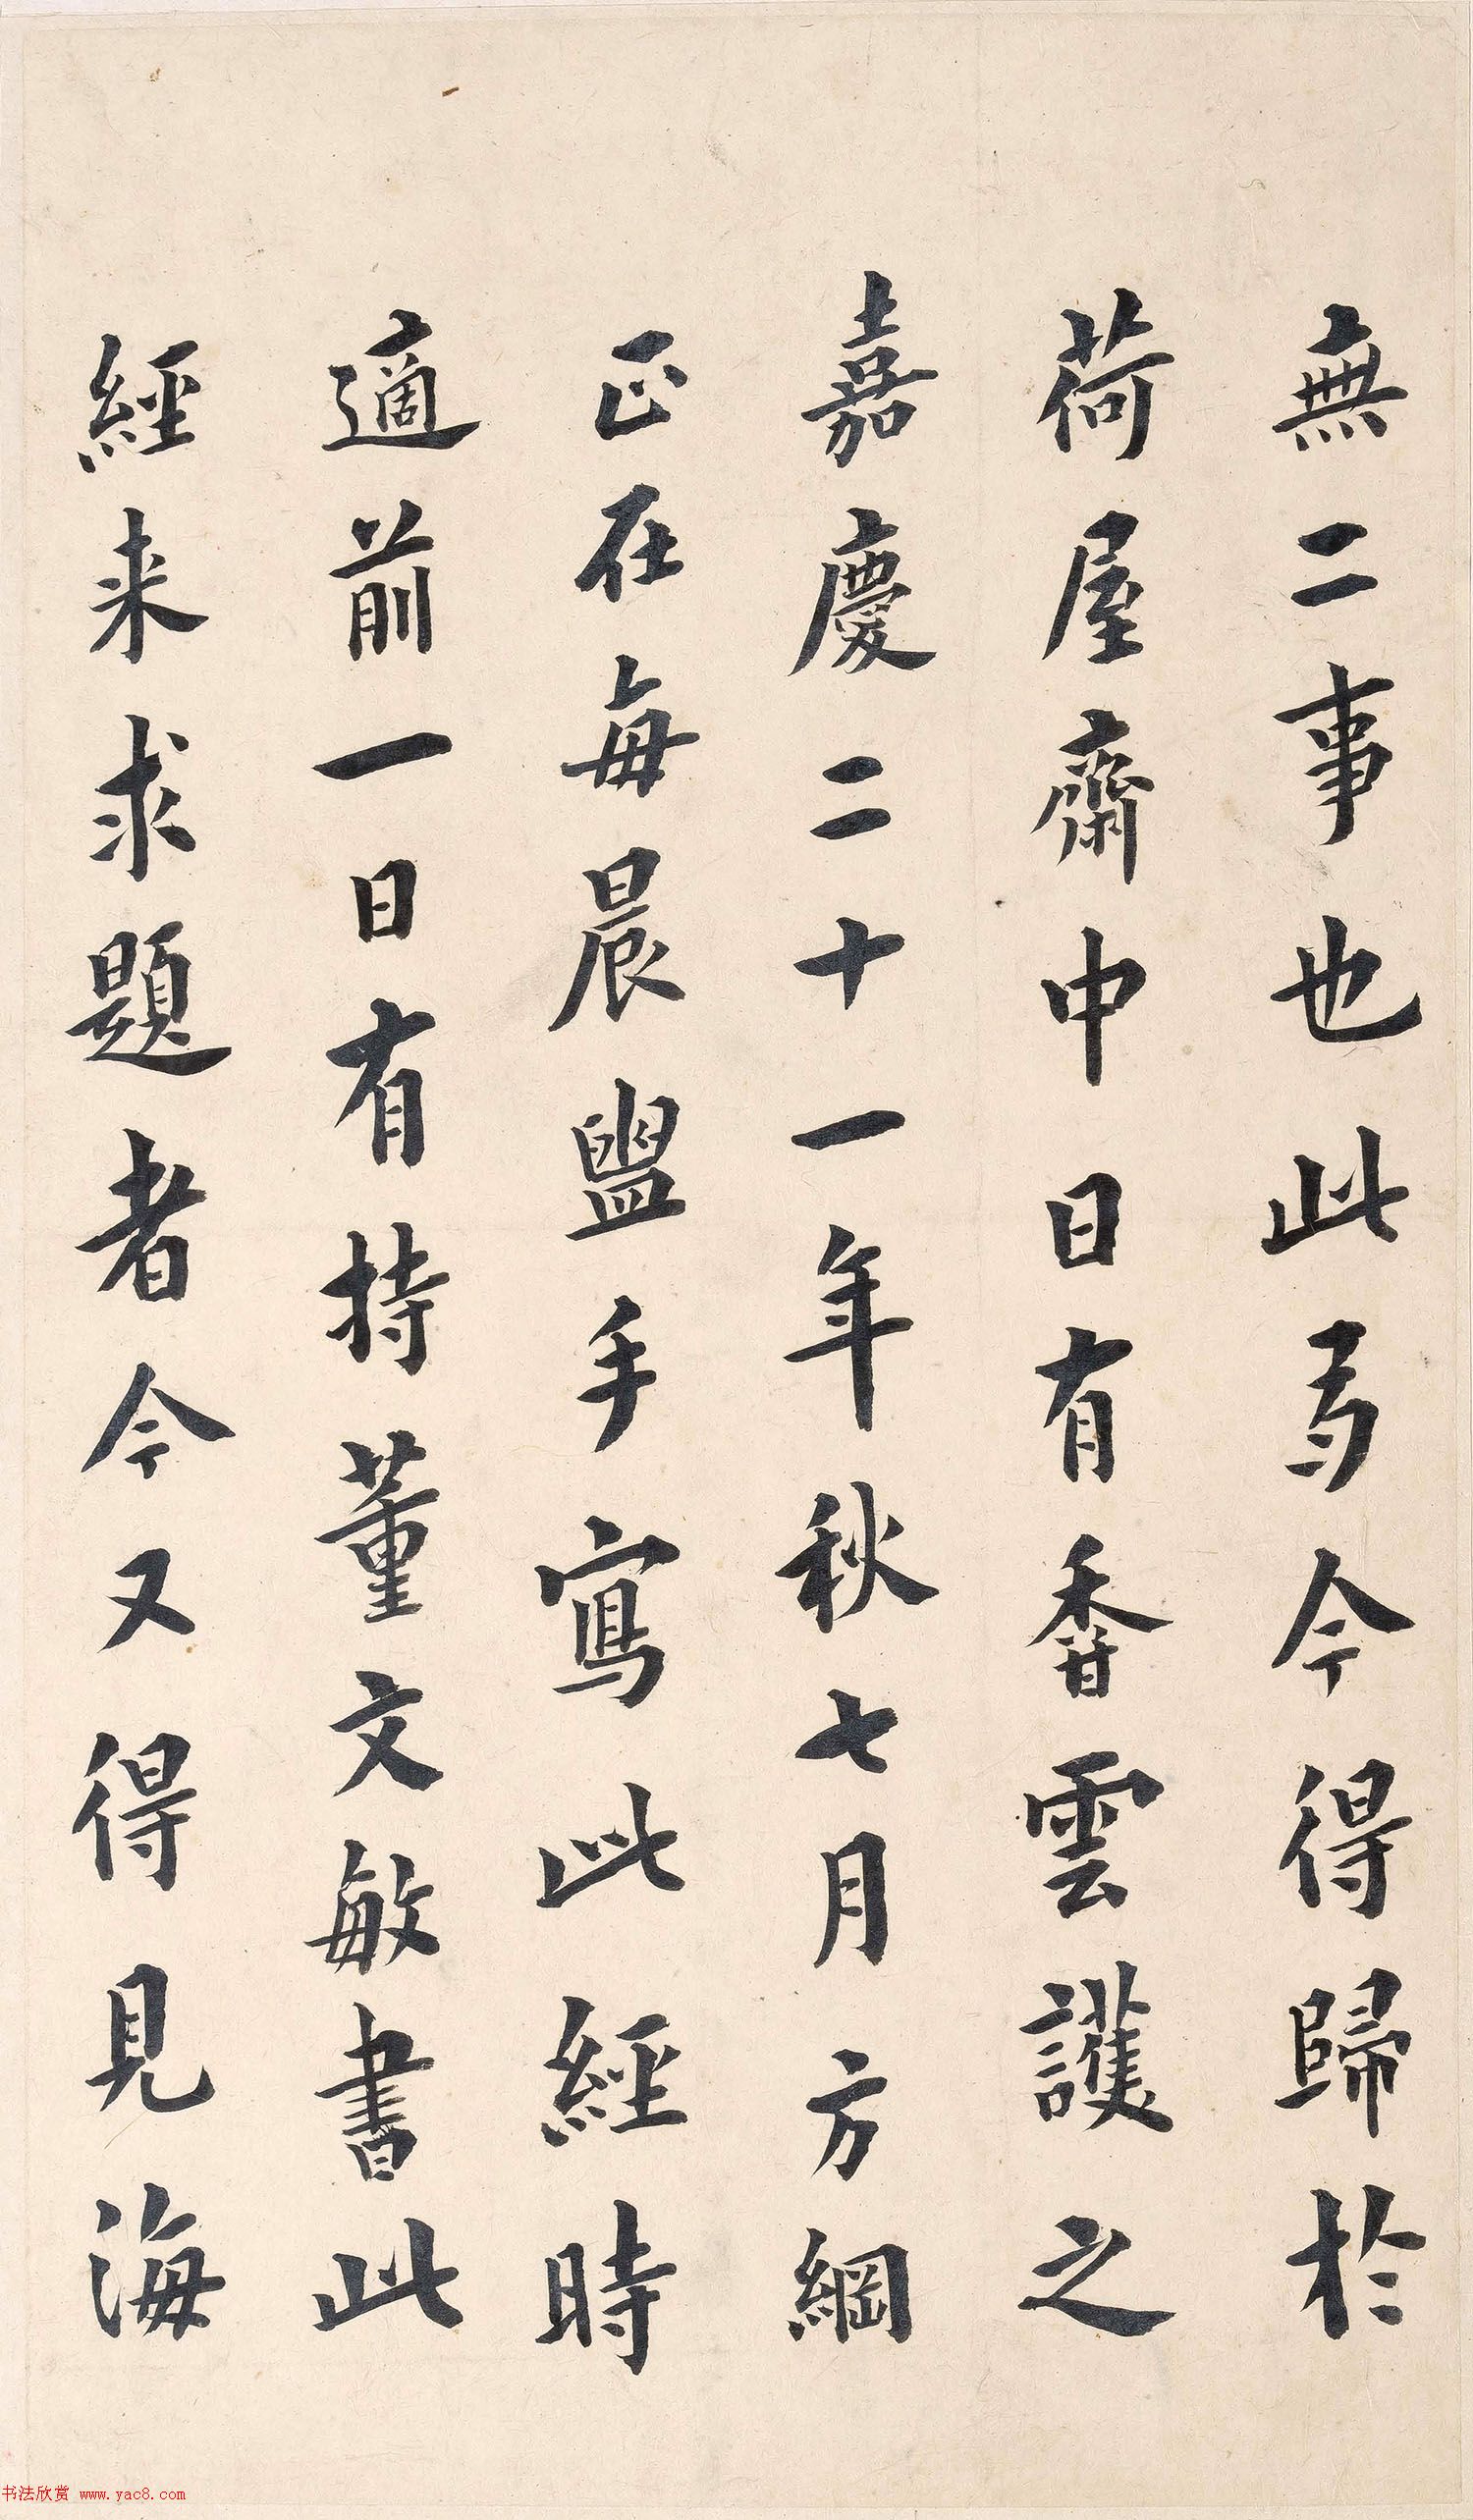 無二事也此寫今得歸於
荷屋齋中日有香雲護之
嘉慶二十一年秋七月方綱
正在每晨盥手寫此經時
適前一日有持董文敏書此
經来求題者今又得見海
书法欣赏 www.yac8.com